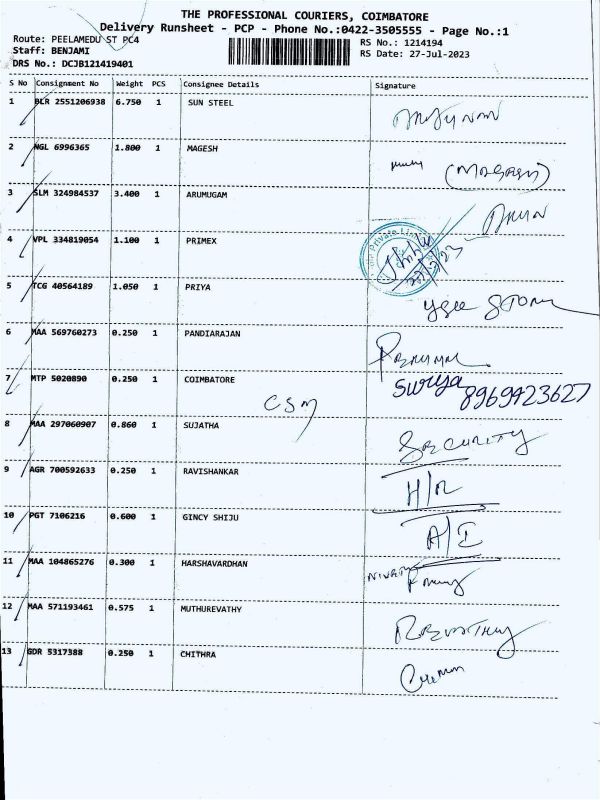 THE PROFESSIONAL COURIERS, COIMBATORE
Delivery Runsheet - PCP - Phone No.:0422-3505555 - Page No.:1
Route: PEELAMEDU ST PC4 RS No.: 1214194
Staff: BENJAMI RS Date: 27-Jul-2023
DRS No.: DCJB121419401
S No Consignment No Weight PCS Consignee Details Signature
1 BLR 2551206938 6.750 1 SUN STEEL
2 NGL 6996365 1.800 1 MAGESH (MAGESH)
3 SLM 324984537 3.400 1 ARUMUGAM
4 VPL 334819054 1.100 1 PRIMEX
5 TCG 40564189 1.050 1 PRIYA
6 MAA 569760273 0.250 1 PANDIARAJAN
7 MTP 5020890 0.250 1 COIMBATORE CSM Surya 8969923627
8 MAA 297060907 0.860 1 SUJATHA SECURITY
9 AGR 700592633 0.250 1 RAVISHANKAR H/R
10 PGT 7106216 0.600 1 GINCY SHIJU A/I
11 MAA 104865276 0.300 1 HARSHAVARDHAN
12 MAA 571193461 0.575 1 MUTHUREVATHY
13 GDR 5317388 0.250 1 CHITHRA